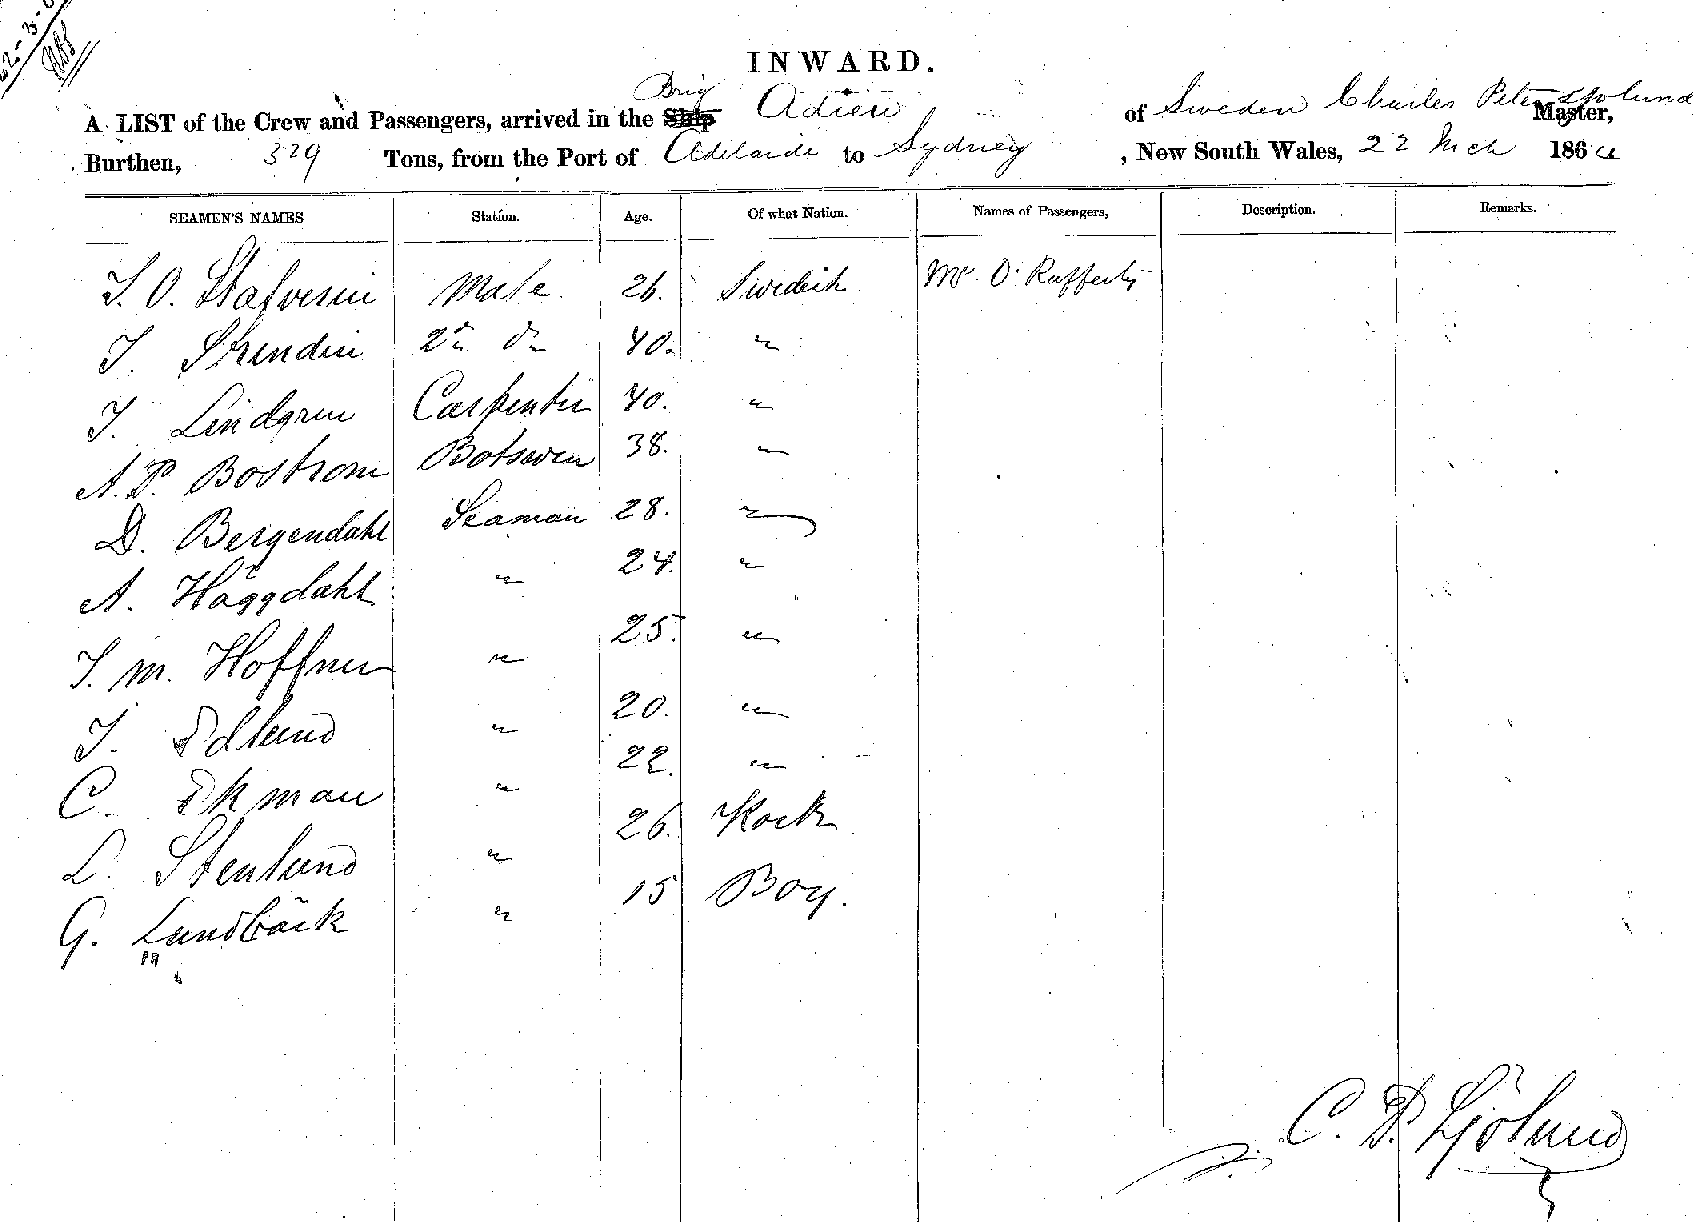 INWARD.
Brig
A LIST of the Crew and Passengers, arrived in the Ship Adieu of Sweden Charles Peter Sjolund Master,
Burthen, 329 Tons, from the Port of Adelaide to Sydney, New South Wales, 22 Mch 186
SEAMEN'S NAMES Station. Age. Of what Nation. Names of Passengers, Description. Remarks.
J. O. Mate. 26. Swedish Mr. O'Rafferty
J. 2n do 40. "
J. Lindgren Carpenter 40. "
A. P. Bostrom Botswen 38. "
D. Bergendahl Seaman 28. "
A. Häggdahl " 24. "
J. M. Hoffner " 25. "
J. Edlund " 20. "
C. Ekman " 22. "
L. Stenlund " 26. Kock
G. Lundbäck " 15 Boy.
C. P. Sjölund